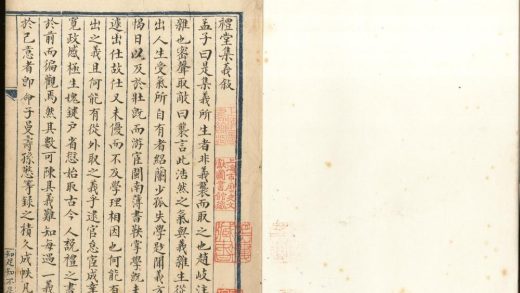 禮堂集義敘
孟子曰是集義所生者非義襲而取之也趙岐注
雜也密聲取敵曰襲言此浩然之氣與義雜生從
出人生受氣所自有者紹蘭少孤失學闕義方
惕日以及於壯旣而游宦閩南薄書鞅掌學旣未
遽出仕故仕又未優而不及學理相因也何能有
出之義且何能有從外取之義乎逮官怠宦成辜
寬政感極生媿鍵戶省愆始取古今人說禮之書
於前而徧觀焉然其數可陳其義難知每遇一義
於己意者卽命子曼壽孫等錄之積久成帙凡
知足知不足